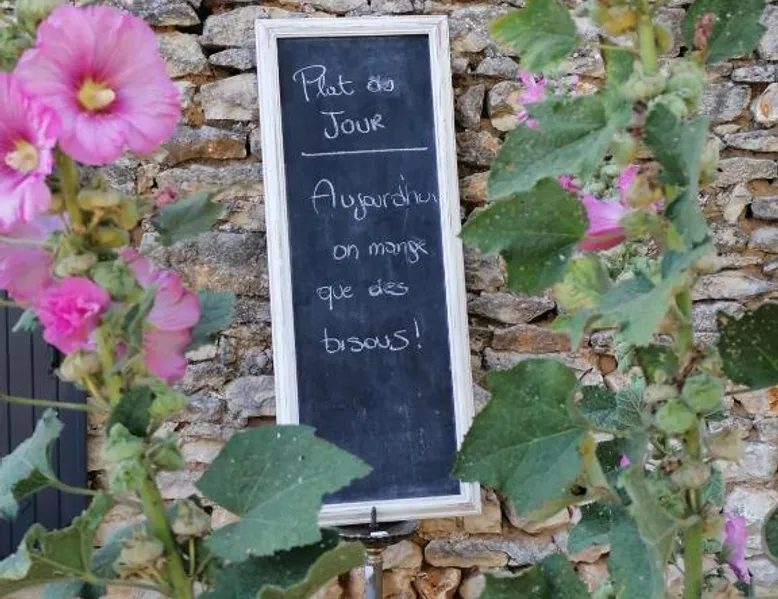 Plat du
Jour
Aujourd'hui
on mange
que des
bisous!